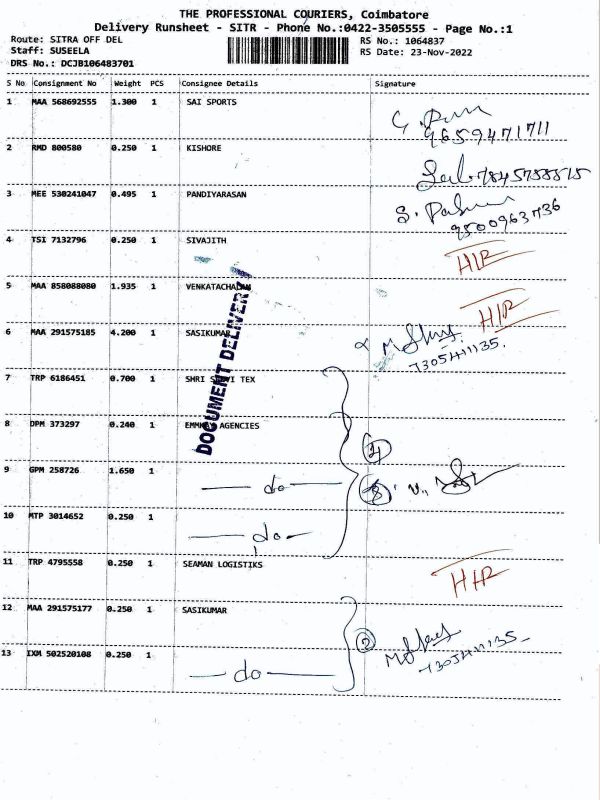 THE PROFESSIONAL COURIERS, Coimbatore
Delivery Runsheet - SITR - Phone No.:0422-3505555 - Page No.:1
Route: SITRA OFF DEL
RS No.: 1064837
Staff: SUSEELA
RS Date: 23-Nov-2022
DRS No.: DCJB106483701
S No Consignment No Weight PCS Consignee Details Signature
1 MAA 568692555 1.300 1 SAI SPORTS
9659471711
2 RMD 800580 0.250 1 KISHORE
3 MEE 530241047 0.495 1 PANDIYARASAN
9500963736
4 TSI 7132796 0.250 1 SIVAJITH
HIR
5 MAA 858088080 1.935 1 VENKATACHALAM
HIR
6 MAA 291575185 4.200 1 SASIKUMAR
7305411135.
DOCUMENT DELIVERY
7 TRP 6186451 0.700 1 SHRI TEX
8 DPM 373297 0.240 1 EMMKAY AGENCIES
4
9 GPM 258726 1.650 1 do
10 MTP 3014652 0.250 1 do
11 TRP 4795558 0.250 1 SEAMAN LOGISTIKS
HIR
12 MAA 291575177 0.250 1 SASIKUMAR
2
7305411135
13 IXM 502520108 0.250 1 do